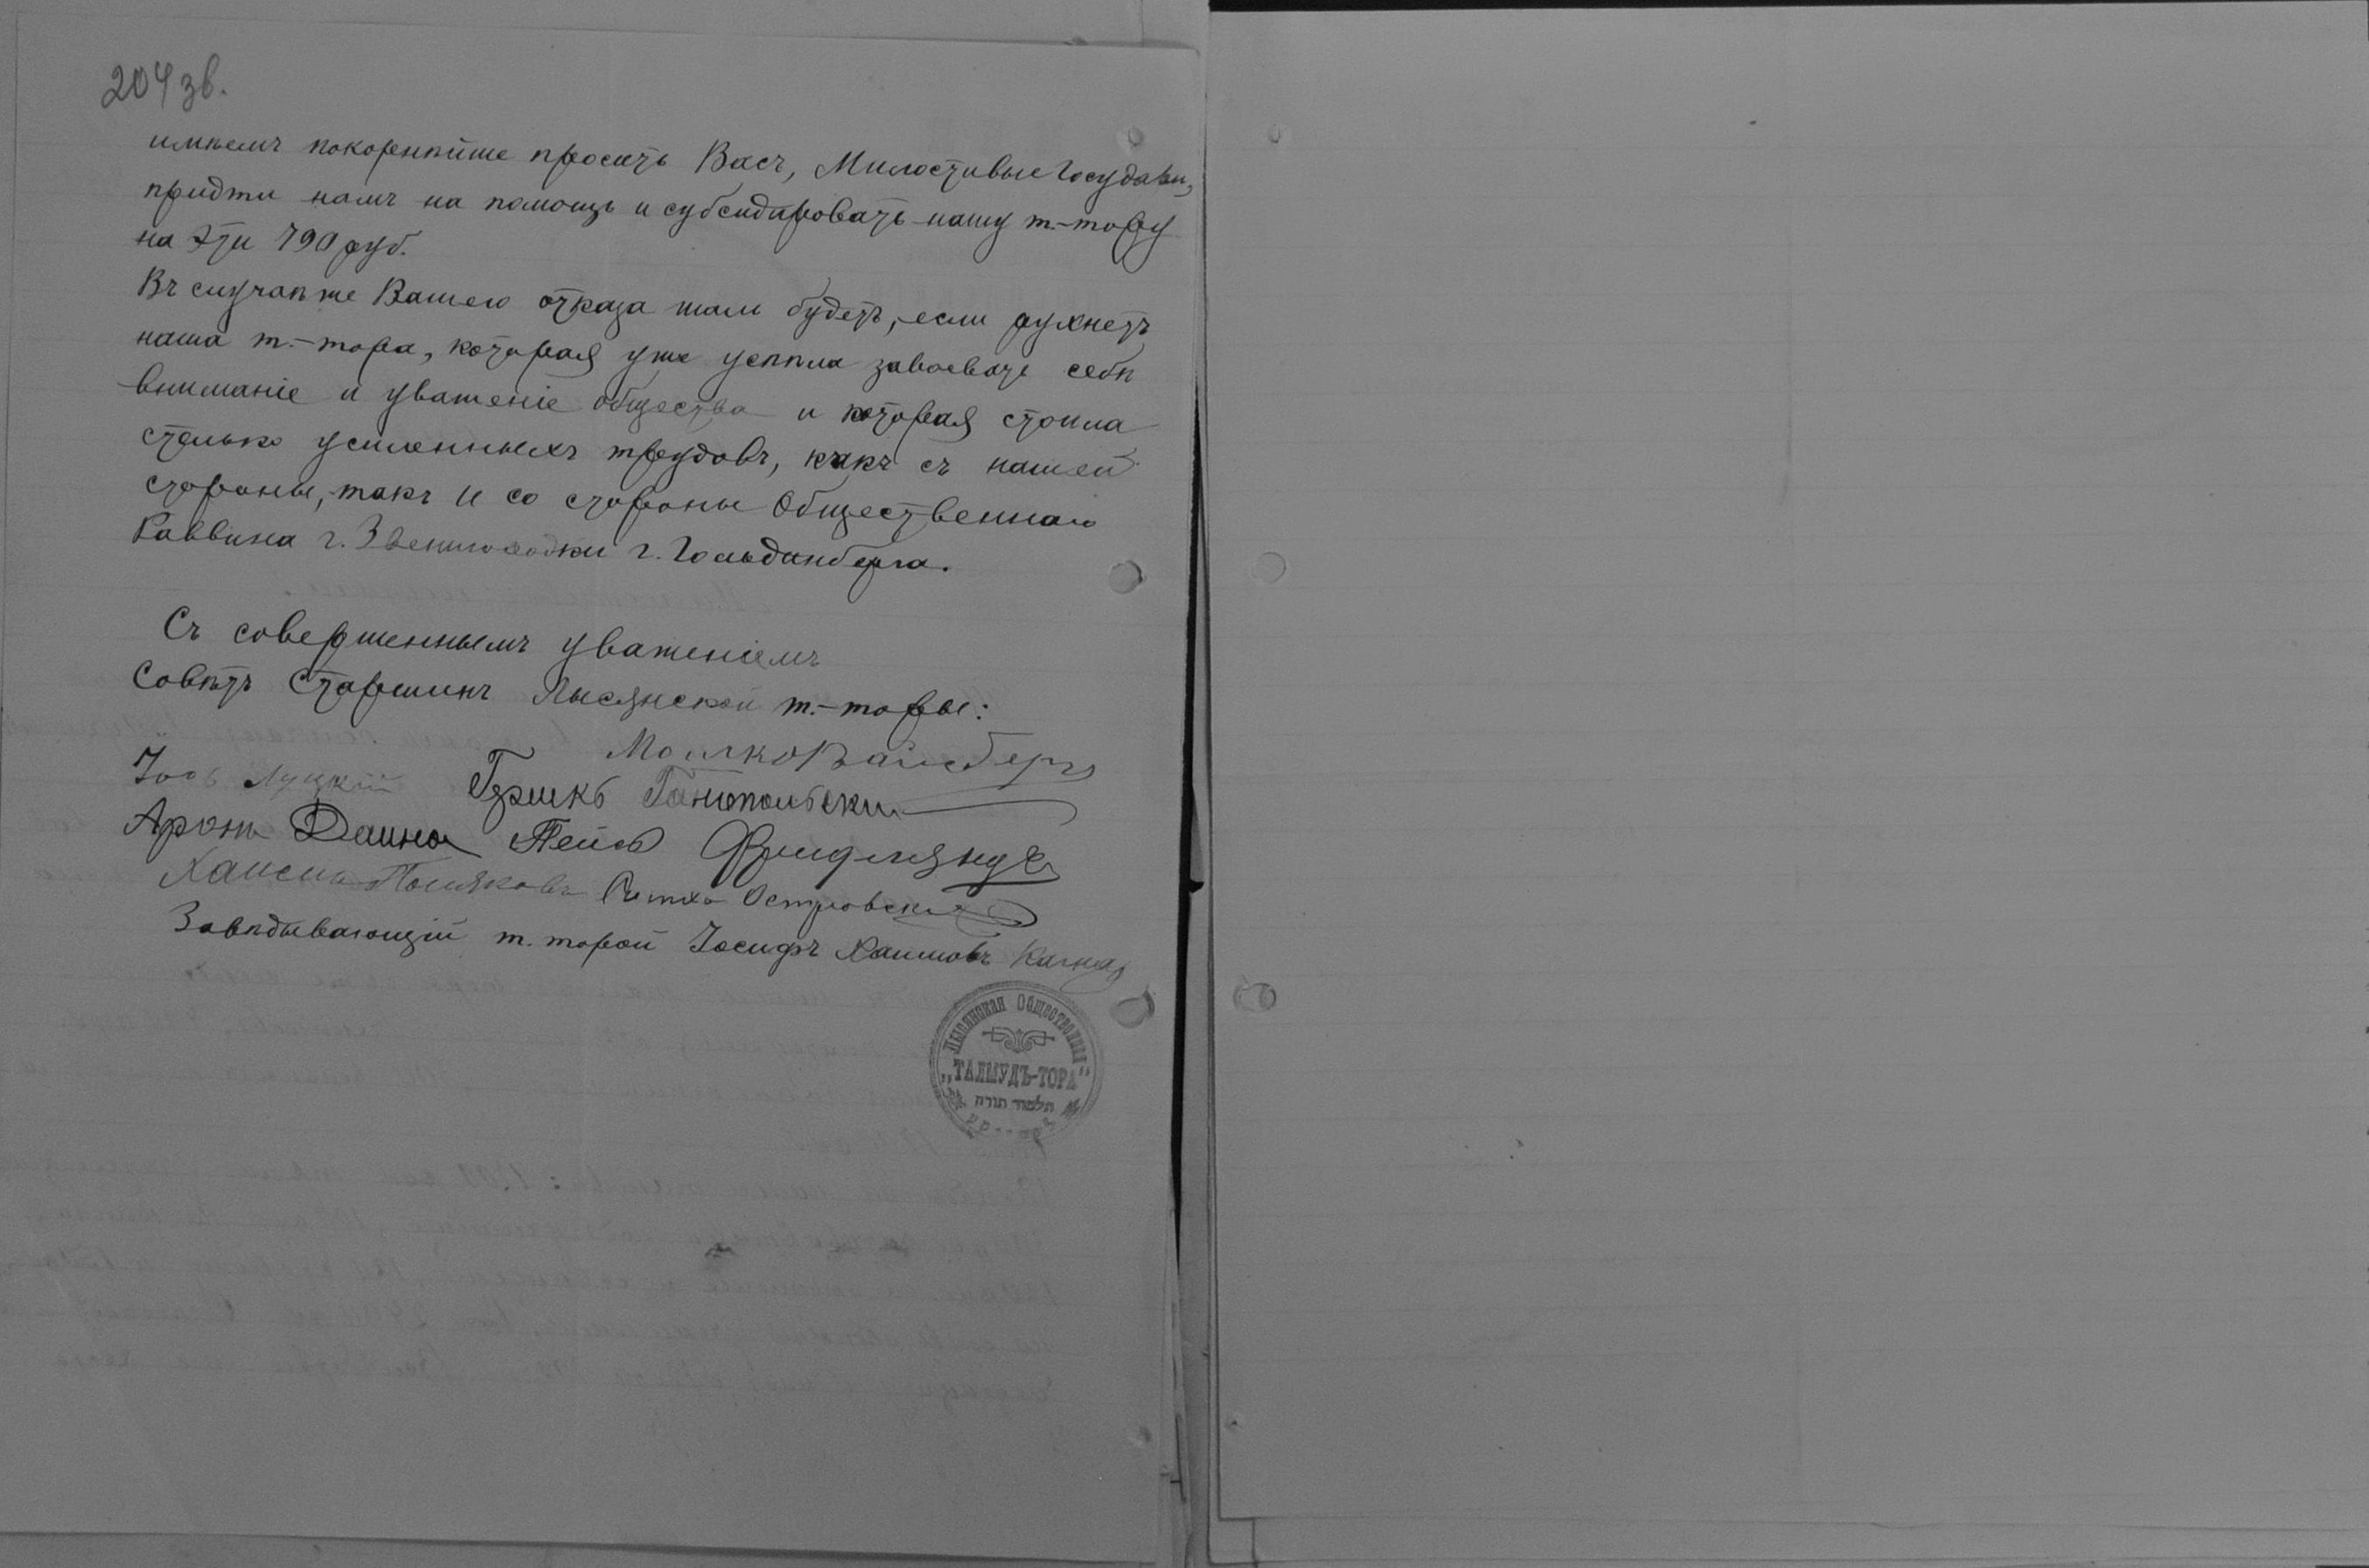 204 зв.
имѣемъ покорнѣйше просить Васъ, Милостивые Государи,
придти намъ на помощь и субсидировать нашу т.-тору
на эти 790 руб.
Въ случаѣ же Вашего отказа жаль будетъ, если рухнетъ
наша т.-тора, которая уже успѣла завоевать себѣ
вниманіе и уваженіе общества и которая стоила
столько усиленныхъ трудовъ, какъ съ нашей
стороны, такъ и со стороны Общественнаго
Раввина г. Звенигородки г. Гольдинберга.
Съ совершеннымъ уваженіемъ
Совѣтъ Старшинъ Лысянской т.-торы:
Мошко Вайсбергъ
Луцкій Гершко
Аронъ
Поляковъ Симха Островскій
Завѣдывающій т. торой Іосифъ Хаимовъ Каганъ
Лысянская Общественная
„ТАЛМУДЪ-ТОРА“
תלמוד תורה